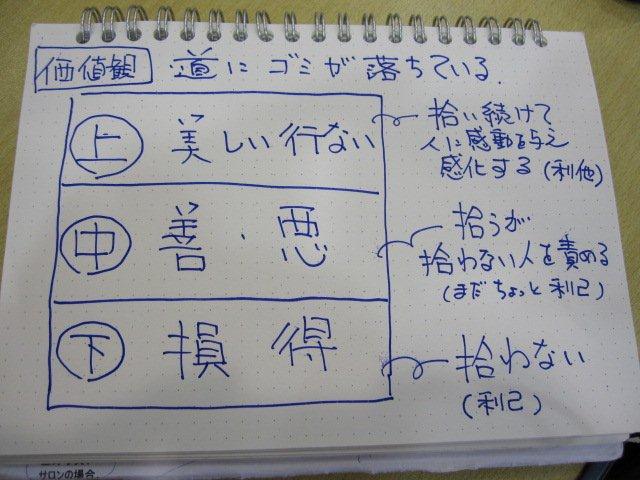 価値観 道にゴミが落ちている.
上 美しい行ない
拾い続けて
人に感動与え
感化する(利他)
中 善・悪
拾うが
拾わない人を責める
(まだちょっと利己)
下 損得
拾わない
(利己)
サロンの場合